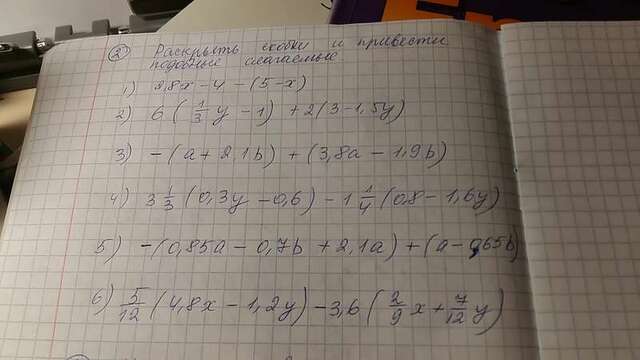 ② Раскрыть скобки и привести
подобные слагаемые
1) 2,8x - 4 - (5 - x)
2) 6 (1/3 y - 1) + 2(3 - 1,5y)
3) - (a + 2,1b) + (3,8a - 1,9b)
4) 3 1/3 (0,3y - 0,6) - 1 1/4 (0,8 - 1,6y)
5) -(0,85a - 0,7b + 2,1a) + (a - 0,65b)
6) 5/12 (4,8x - 1,2y) - 3,6 (2/9 x + 7/12 y)